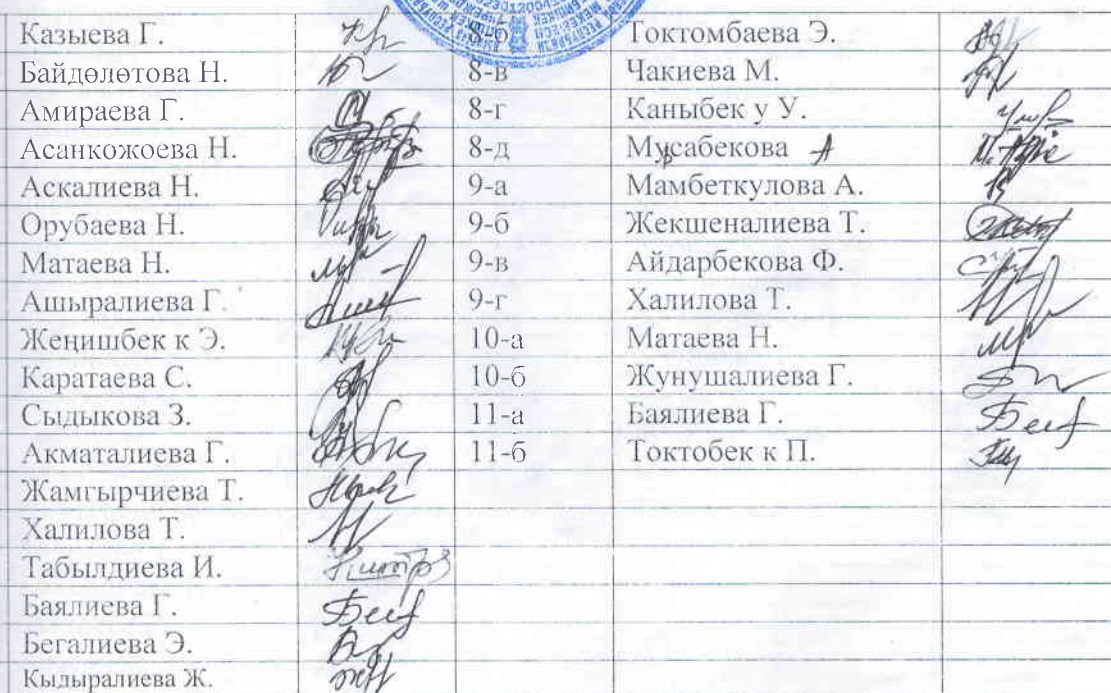 Казыева Г. 8-б Токтомбаева Э.
Байдөлөтова Н. 8-в Чакиева М.
Амираева Г. 8-г Каныбек у У.
Асанкожоева Н. 8-д Мусабекова А
Аскалиева Н. 9-а Мамбеткулова А.
Орубаева Н. 9-б Жекшеналиева Т.
Матаева Н. 9-в Айдарбекова Ф.
Ашыралиева Г. 9-г Халилова Т.
Жеңишбек к Э. 10-а Матаева Н.
Каратаева С. 10-б Жунушалиева Г.
Сыдыкова З. 11-а Баялиева Г.
Акматалиева Г. 11-б Токтобек к П.
Жамгырчиева Т.
Халилова Т.
Табылдиева И.
Баялиева Г.
Бегалиева Э.
Кыдыралиева Ж.